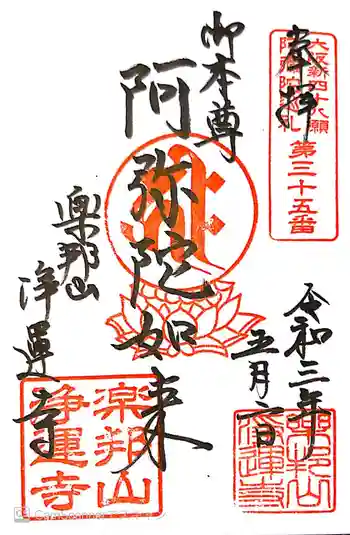 奉拝
大阪新四十八願
阿弥陀巡礼
第三十五番
令和三年
五月二日
御本尊
阿弥陀如来
楽邦山
浄運寺
楽邦山
浄運寺